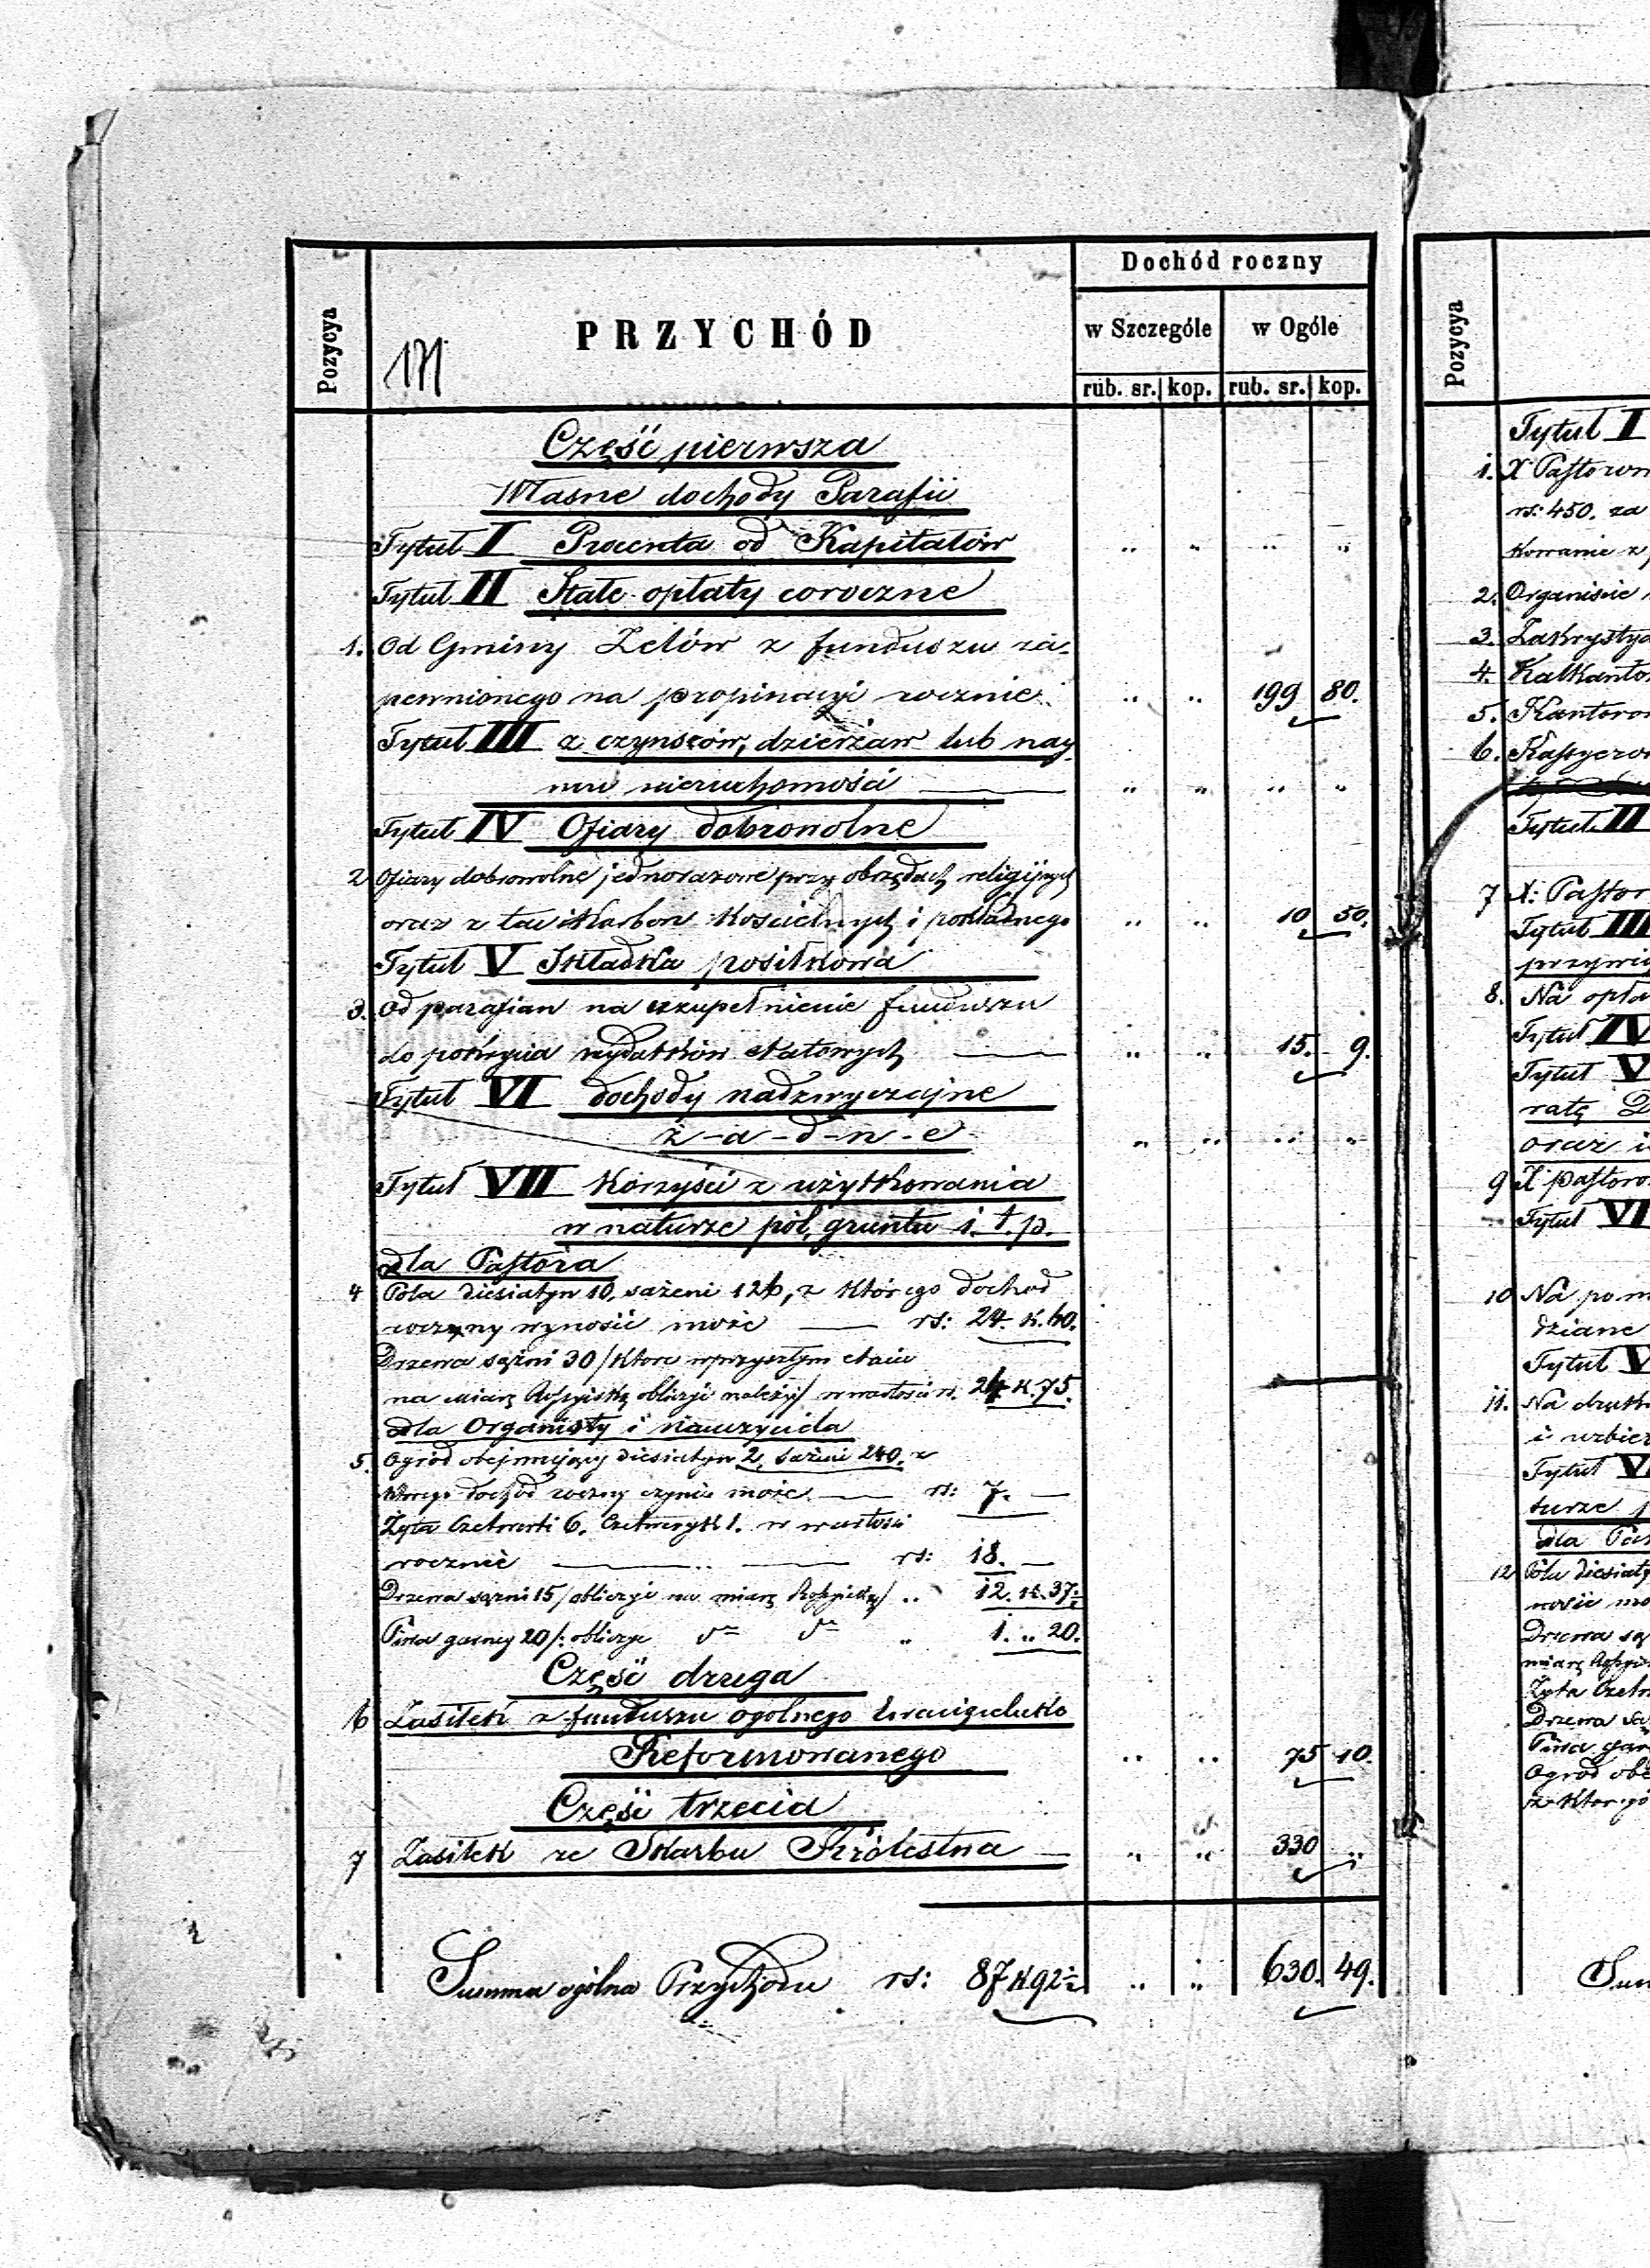 Dochód roczny
Pozycya
PRZYCHÓD
w Szczególe w Ogóle
rub. sr. kop. rub. sr. kop.
171
Część pierwsza
Własne dochody Parafii
Tytuł I Procenta od Kapitałów " " " "
Tytuł II Stałe opłaty coroczne
1. Od Gminy Zelów z funduszu za-
pewnionego na propinacyi rocznie " " 199 80.
Tytuł III z czynszów, dzierżaw lub nay
mu nieruchomości — " " " "
Tytuł IV Ofiary dobrowolne
2 Ofiary dobrowolne jednorazowe przy obrzędach religijnych
oraz z Karbon Kościelnych i pokładnego " " 10 50.
Tytuł V Składka posiłkowa
3. Od parafian na uzupełnienie funduszu
do pokrycia wydatków etatowych — " " 15. 9.
Tytuł VI dochody nadzwyczajne
ż-a-d-n-e " " " "
Tytuł VII Korzyści z użytkowania
w naturze pól, gruntu i.t.p.
dla Pastora
4 Pola diesiatyn 10, sażeni 126, z którego dochod
roczny wynosić może — rs: 24. k. 60.
Drzewa sążni 30 /które wprzyszłym etacie
na miarę Rossyiską obliczyć należy/ w wartości rs. 24 k. 75.
dla Organisty i Nauczyciela
5. Ogród obejmujący diesiatyn 2, sażeni 240. z
którego dochód roczny czynić może — rs: 7. —
Żyta Czetwerti 6. Czetweryk 1. w wartości
rocznie — " — rs: 18. —
Drzewa sążni 15 /obliczyć na miarę Rossyiską/ " 12. k. 37½
Piwa garncy 20 /: obliczyć dto dto " 1. " 20.
Część druga
6 Zasiłek z funduszu ogólnego Ewangelicko
Reformowanego " " 75 10.
Część trzecia
7 Zasiłek ze Skarbu Królestwa — " " 330 "
Summa ogólna Przychodu rs: 87 k 92½ " " 630. 49.
Pozycya
Tytuł I
1. X Pastorow
rs: 450. za
kowanie z
2. Organiście
3. Zakrystya
4. Kalkanto
5. Kantorow
6. Kassyerow
Tytuł II
7 X: Pastor
Tytuł III
8. Na opła
Tytuł IV
Tytuł V
ratę
oraz i
9 X pastoro
Tytuł VI
10 Na pom
dziane
Tytuł V
11. Na druk
i uzbier
Tytuł V
turze p
dla Pas
12 Pola diesiaty
nosić mo
Drzewa są
miarę Rossyi
Żyta Czetw
Drzewa są
Piwa gar
Ogród obe
z którego
Sum